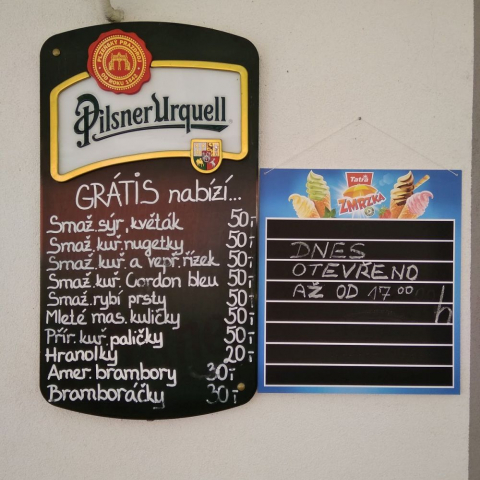 PLZEŇSKÝ PRAZDROJ
OD ROKU 1842
Pilsner Urquell
GRÁTIS nabízí...
Smaž.sýr, květák 50,-
Smaž.kuř.nugetky 50,-
Smaž.kuř. a vepř.řízek 50,-
Smaž.kuř. Gordon bleu 50,-
Smaž.rybí prsty 50,-
Mleté mas.kuličky 50,-
Přír.kuř.paličky 50,-
Hranolky 20,-
Amer.brambory 30,-
Bramboráčky 30,-
Tatra
ZMRZKA
DNES
OTEVŘENO
AŽ OD 17 00 h